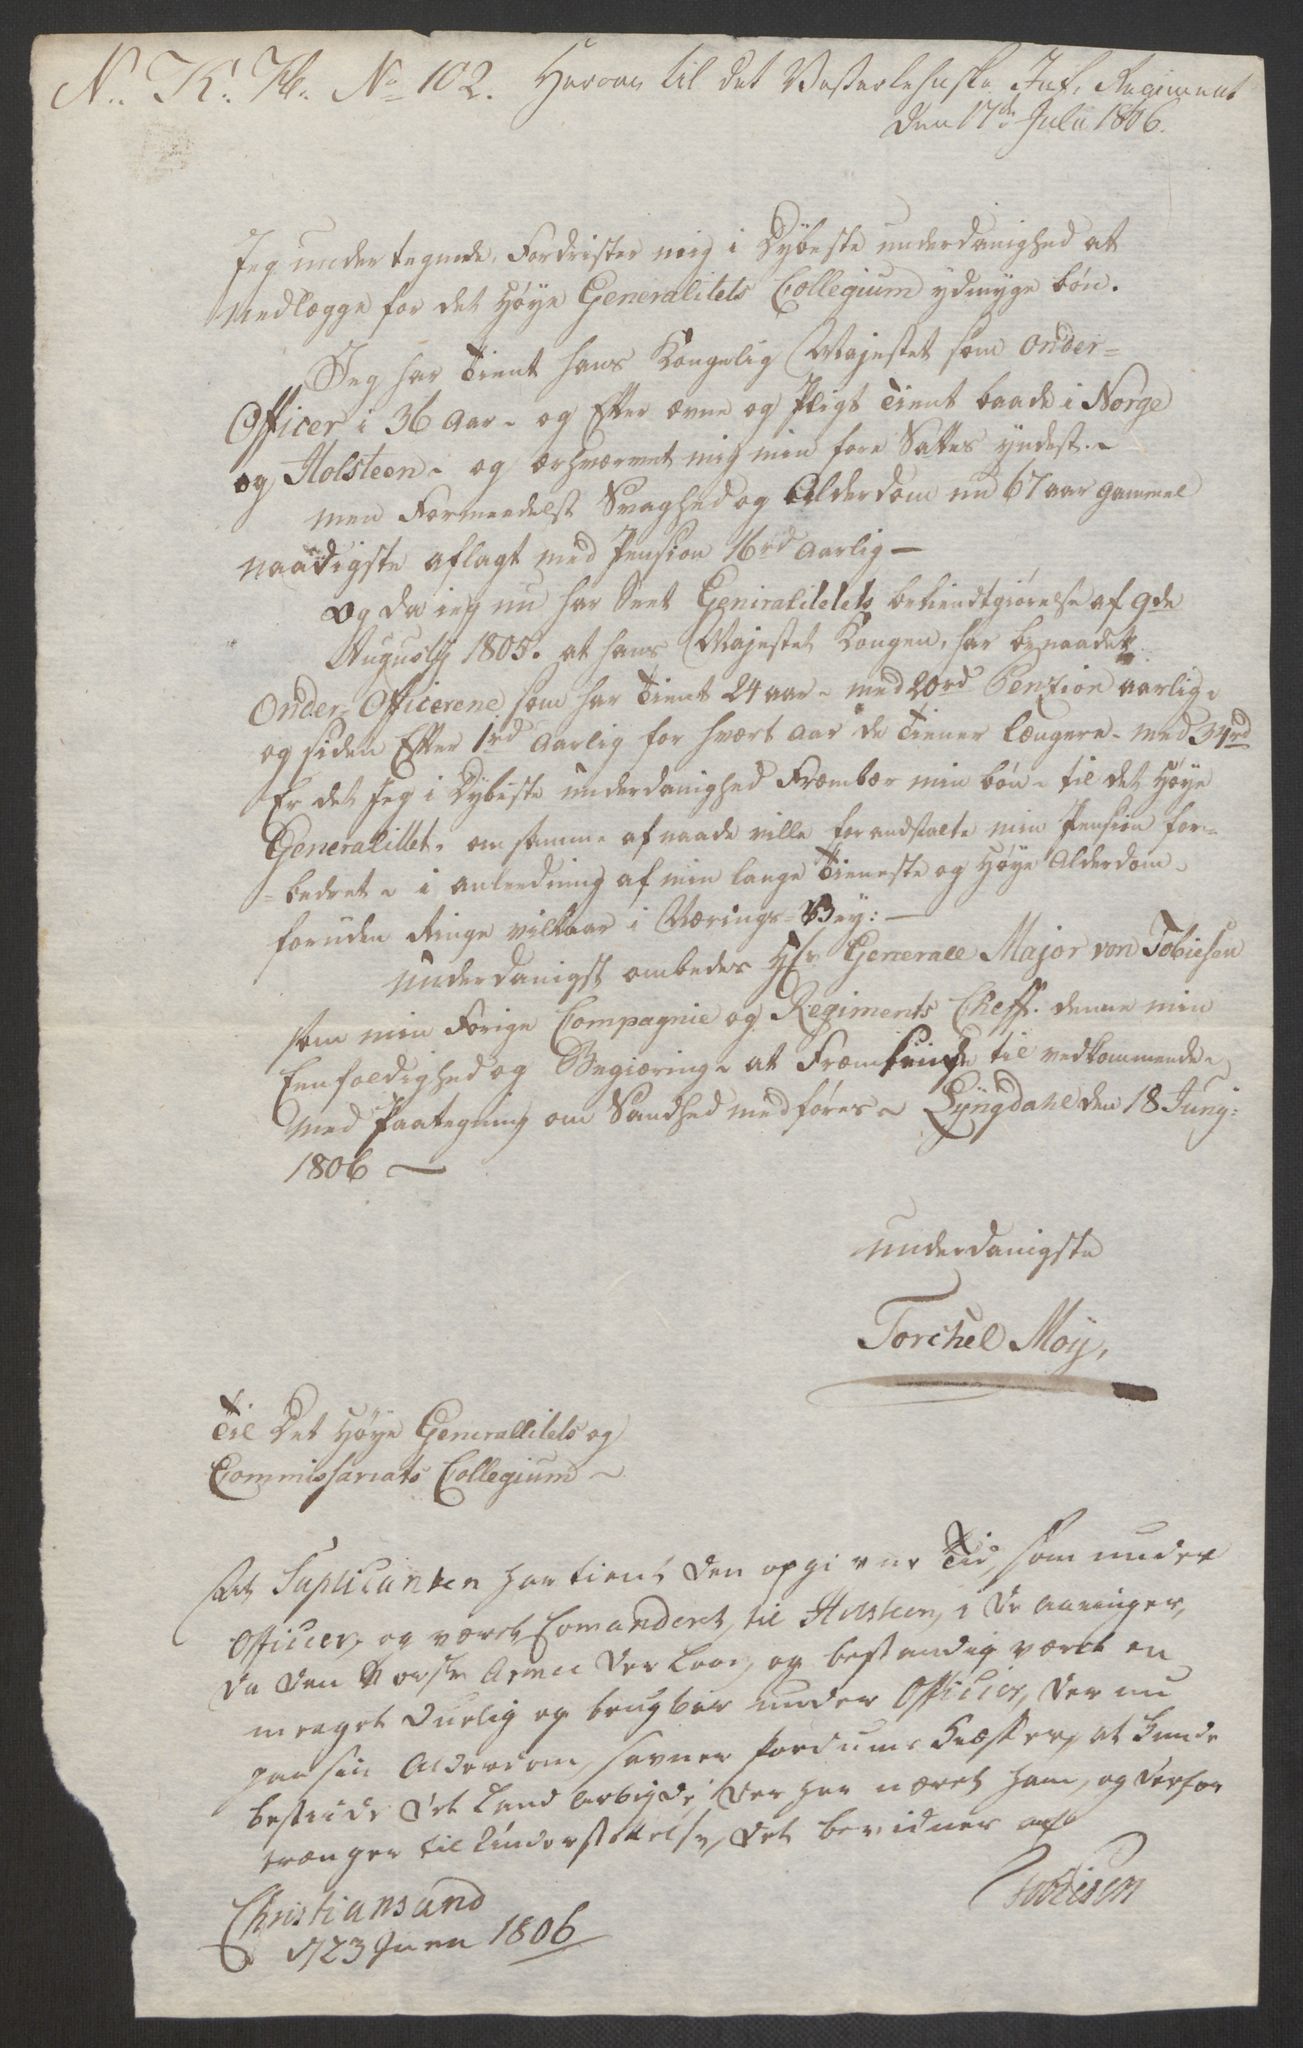 N. K. No 102. Herom til det Vesterlehnske Inf. Regiment
den 17de Julii 1806.
Jeg undertegnede, Fordrister mig i Dybeste underdanighed at
nedlægge for det Høye Generalitets Collegium ydmyge bøn.
Jeg har Tient hans Kongelig Majestet som Onder=
Officer i 36 Aar - og Efter ævne og Pligt Tient baade i Norge
og Holsteen - og erhværvet mig min fore Sattes yndest. -
men Formeedelst Svaghed og Alderdom nu 67 aar gammel
naadigste aflagt med Pension 16rd Aarlig -
og da ieg nu har Seet Geniralitetets bekiendtgiørelse af 9de
Augustij 1805. at hans Majestet Kongen, har benaadet
Onder-Officerene som har Tient 24 aar - med 20rd Penzion aarlig -
og siden Efter 1rd Aarlig for hvært aar de Tiener længere - med 34rd
Er det Jeg i Dybeste underdanighed Fræmbær min bøn - til det Høye
Generalitet. om samme af naade ville forandstalte min Pension for=
=bedret - i anleedning af min lange Tieneste og Høye Alderdom -
foruden Ringe vilkaar i Nærings=Vey: -
underdanigst ombedes Hr Generall Major von Tobiesen
som min Forige Compagnie og Regiments Cheff. denne min
Eenfoldighed og Begiæring - at Fræm til vedkommende -
med Paategning om Sandhed medføres - Lyngdahl den 18 Junij:
1806 -
underdanigste
Torchel Moy,
Til Det Høye Generallitets og
Commissariats Collegium -
At Suplicanten har tient den opgivne Tid, som under
Officer, og været Comanderet, til Holsteen, i de Aaringer,
da den Norske Armee der laae, og bestandig været en
meeget Duelig og brugbar under Officier, der nu
paa sin Alderdom, savner fordums Kræfter, at kunde
bestride det Land Arbeyde, der har næret ham, og derfor
trænger til Understøttelse, det bevidner
Tobiesen
Christiansand
d 23 Junii 1806